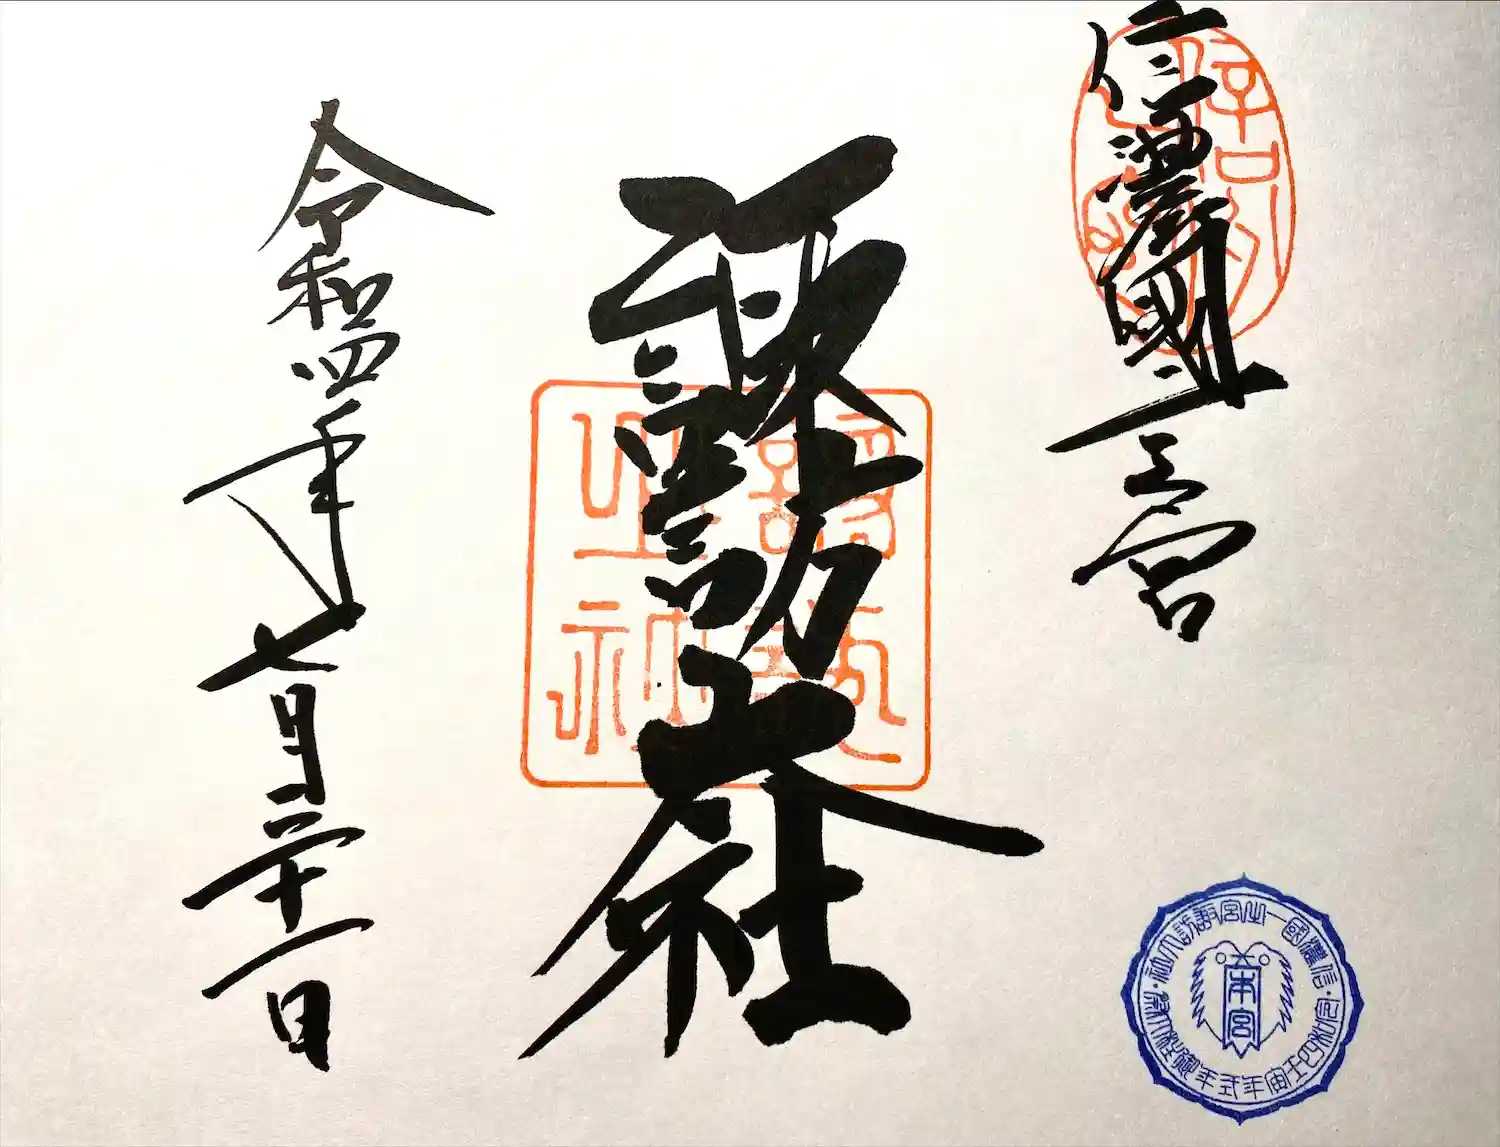 信濃國一之宮
諏訪大社
令和四年七月二十一日
信濃國一之宮諏訪大社・令和四壬寅年式年御柱大祭・
本宮